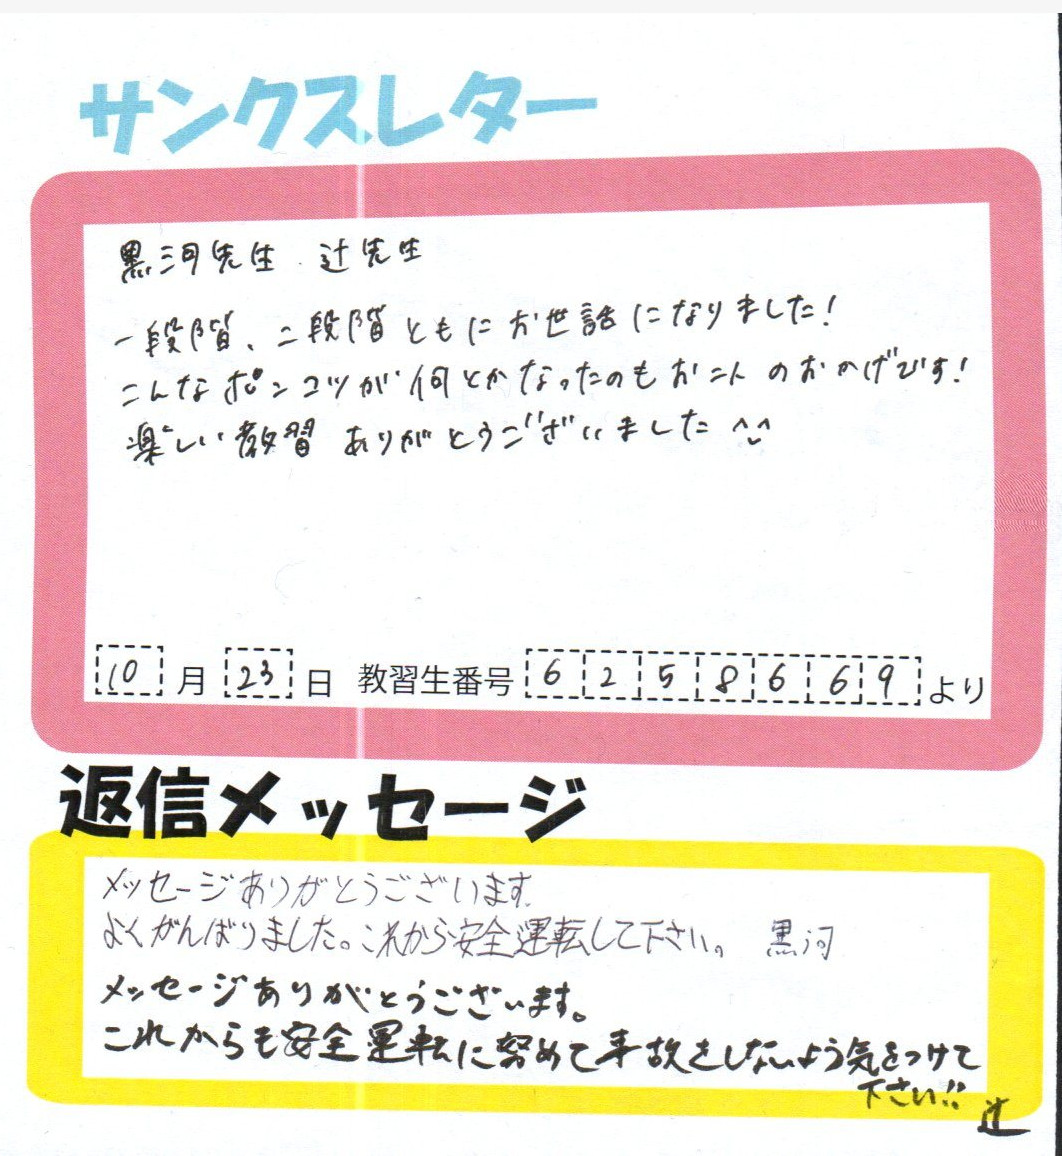 サンクスレター
黒河先生 辻先生
一段階、二段階ともにお世話になりました!
こんなポンコツが何とかなったのもお二人のおかげです!
楽しい教習ありがとうございました ^^
10月23日 教習生番号 6258669より
返信メッセージ
メッセージありがとうございます。
よくがんばりました。これから安全運転して下さい。 黒河
メッセージありがとうございます。
これからも安全運転に努めて事故をしないよう気をつけて
下さい!!
辻